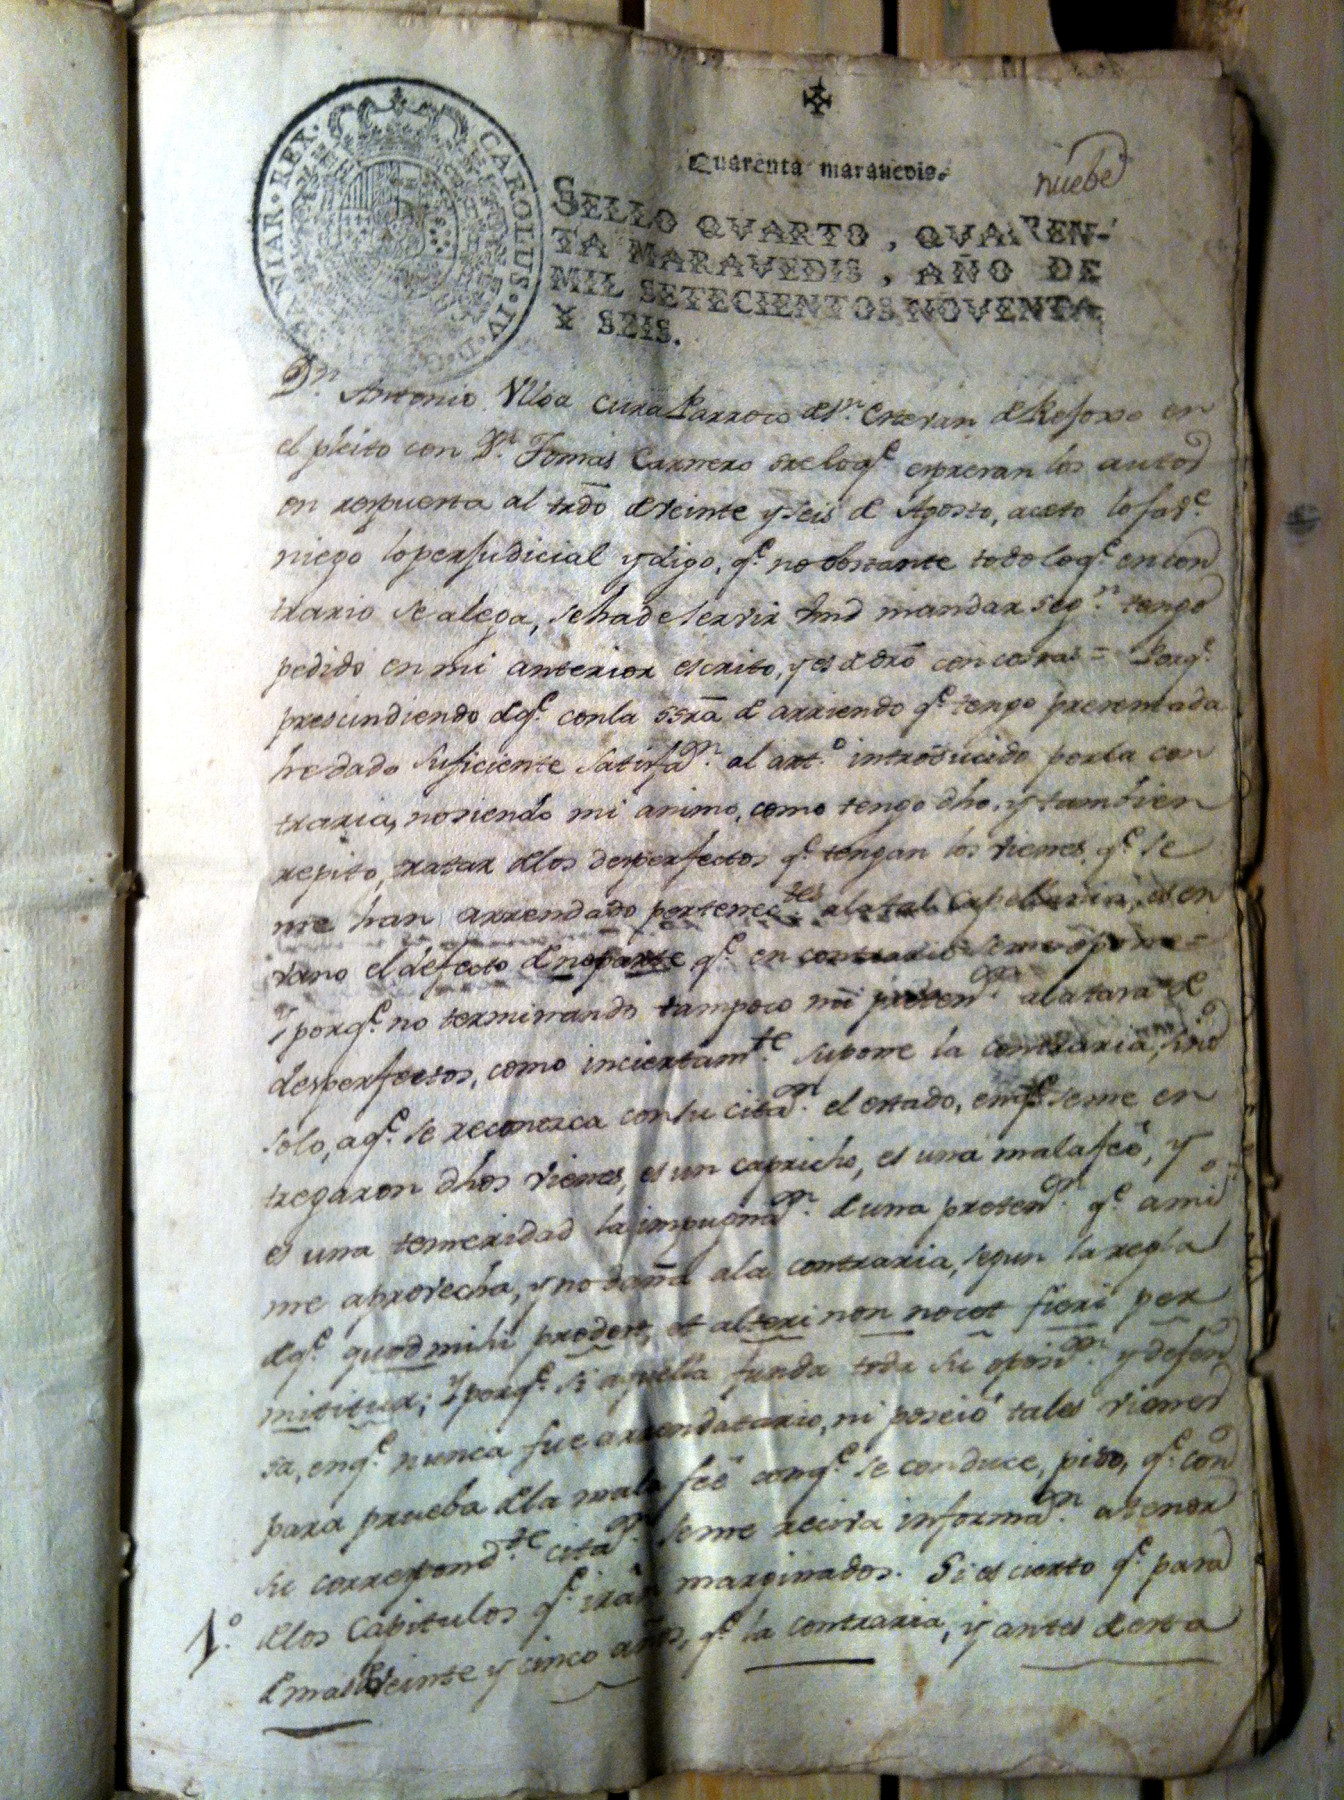 HISPANIAR·REX· CAROLUS·IV·D·G·
Quarenta maravedis.
nuebe
SELLO QVARTO, QVAREN-
TA MARAVEDIS, AÑO DE
MIL SETECIENTOS NOVENTA
Y SEIS.
Dn. Antonio Ulloa Cura Parroco de Sn. Estevan de Refoxo en
el pleito con Dn. Tomás Carnero sre loqe. expresan los autos
en respuesta al trdo de veinte y seis de Agosto, aceto lo fave.
niego lo perjudicial y digo, qe. no obstante todo loqe. en con
trario se alega, se ha de servir Vmd mandar segn. tengo
pedido en mi anterior escrito, y es de dro con costas = Porqe.
prescindiendo de qe. con la ssra de arriendo qe. tengo presentada
he dado suficiente satisfaon. al arto. introducido por la con
traria, no siendo mi animo, como tengo dho, y tambien
repito, tratar de los desperfectos qe. tengan los vienes, qe. se
me han arrendado pertenectes a la tal Capellania, es en
vano el defecto de no parte qe. en contrario se me opone =
Y porqe. no terminando tampoco mi pretenon. a la tasa de
desperfectos, como inciertamte. supone la contraria, sino
solo, a qe. se reconozca con su citaon. el estado, en qe. se me en
tregaron dhos vienes, es un capricho, es una mala feé, y
es una temeridad la impugnaon. de una pretenon. qe. a mi
me aprovecha, y no daña a la contraria, segun la regla
de qe. quod mihi prodest, et alteri non nocet fieri per
mititur; Y porqe. si aquella funda toda su oposion. y defen
sa, en qe. nunca fue arrendatario, ni poseió tales vienes
para prueba de la mala feé con qe. se conduce, pido, qe. con
su correspondte. citaon. se me reciva informaon. a tenor
de los Capitulos qe. irán marginados. Si es cierto qe. para
1o. de mas de veinte y cinco años, qe. la contraria, y antes de esta